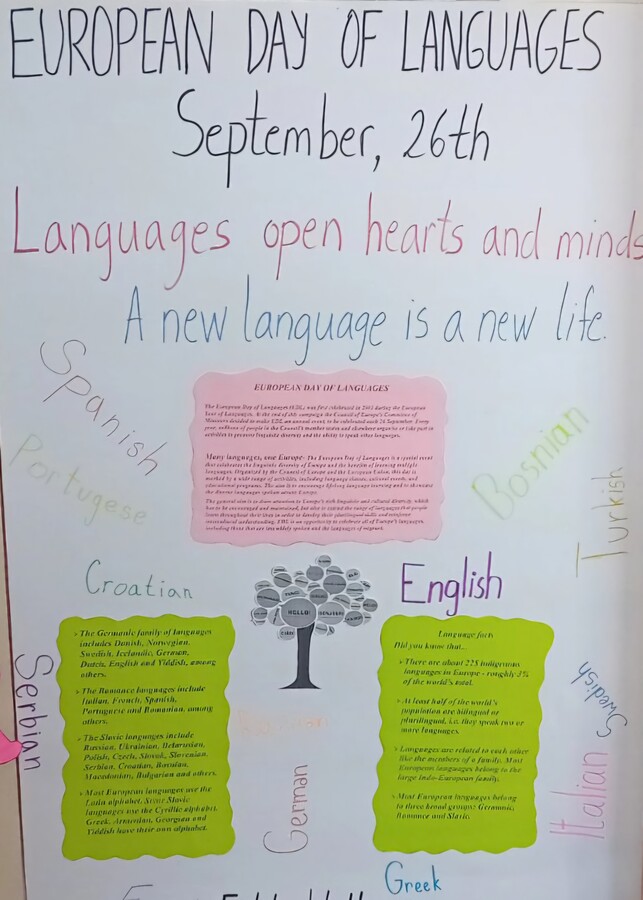 EUROPEAN DAY OF LANGUAGES
September, 26th
Languages open hearts and minds
A new language is a new life.
Spanish
Portugese
Bosnian
Turkish
EUROPEAN DAY OF LANGUAGES
The European Day of Languages (EDL) was first celebrated in 2001 during the European
Year of Languages. At the end of this campaign the Council of Europe's Committee of
Ministers decided to make EDL an annual event, to be celebrated each 26 September. Every
year, millions of people in the Council's member states and elsewhere organise or take part in
activities to promote linguistic diversity and the ability to speak other languages.
Many languages, one Europe- The European Day of Languages is a special event
that celebrates the linguistic diversity of Europe and the benefits of learning multiple
languages. Organized by the Council of Europe and the European Union, this day is
marked by a wide range of activities, including language classes, cultural events, and
educational programs. The aim is to encourage lifelong language learning and to showcase
the diverse languages spoken across Europe.
The general aim is to draw attention to Europe's rich linguistic and cultural diversity, which
has to be encouraged and maintained, but also to extend the range of languages that people
learn throughout their lives in order to develop their plurilingual skills and reinforce
intercultural understanding. EDL is an opportunity to celebrate all of Europe's languages,
including those that are less widely spoken and the languages of migrants.
Croatian
English
HELLO!
Serbian
> The Germanic family of languages
includes Danish, Norwegian,
Swedish, Icelandic, German,
Dutch, English and Yiddish, among
others.
> The Romance languages include
Italian, French, Spanish,
Portuguese and Romanian, among
others.
> The Slavic languages include
Russian, Ukrainian, Belarusian,
Polish, Czech, Slovak, Slovenian,
Serbian, Croatian, Bosnian,
Macedonian, Bulgarian and others.
> Most European languages use the
Latin alphabet. Some Slavic
languages use the Cyrillic alphabet.
Greek, Armenian, Georgian and
Yiddish have their own alphabet.
German
Language facts
Did you know that...
> There are about 225 indigenous
languages in Europe - roughly 3%
of the world's total.
> At least half of the world's
population are bilingual or
plurilingual, i.e. they speak two or
more languages.
> Languages are related to each other
like the members of a family. Most
European languages belong to the
large Indo-European family.
> Most European languages belong
to three broad groups: Germanic,
Romance and Slavic.
Swedish
Italian
Greek